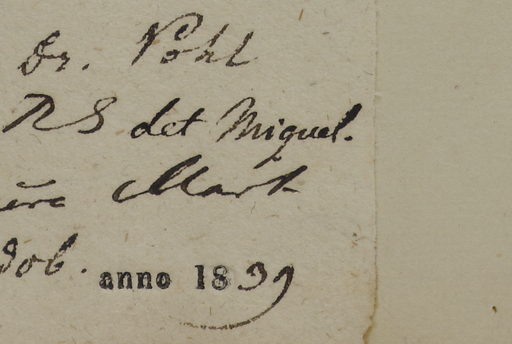 Dr. Pohl
RS det Miquel.
Mart
dob.
anno 1839